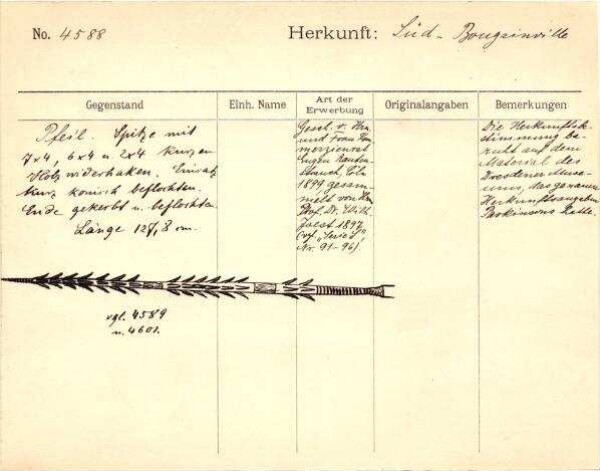 No. 4588
Herkunft: Süd-Bougainville
Gegenstand
Einh. Name
Art der Erwerbung
Originalangaben
Bemerkungen
Pfeil. Spitze mit
7x4, 6x4 u. 2x4 kurzen
Holzwiderhaken. Einsatz
kurz konisch beflochten.
Ende gekerbt u. beflochten.
Länge 127,8 cm.
vgl. 4589
u. 4601.
Gesch. v. Hrn
und Frau Kom
merzienrat
Eugen Rauten
strauch, Cöln
1899 gesam
melt von Hrn
Prof. Dr. Wilh.
Joest 1897
(vgl. „Series",
Nr. 91-96).
Die Herkunftsbe-
stimmung be-
ruht auf dem
Material des
Dresdener Muse-
ums, das genaue
Herkunftsangaben
Parkinsons hatte.